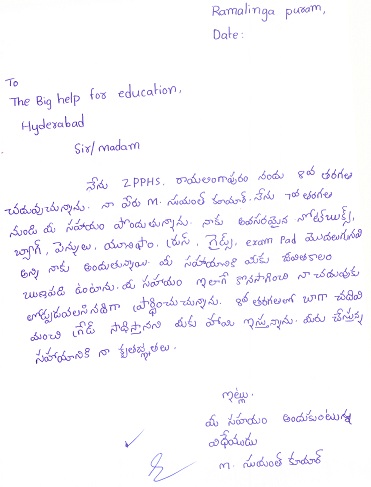 Ramalinga puram,
Date:
To
The Big help for education,
Hyderabad
Sir/madam
నేను ZPPHS. రామలింగాపురం నందు 8వ తరగతి
చదువుచున్నాను. నా పేరు M. సుమంత్ కుమార్. నేను 7వ తరగతి
నుండి మీ సహాయం పొందుతున్నాను. నాకు అవసరమైన నోట్‌బుక్స్,
బ్యాగ్, పెన్నులు, యూనిఫాం, షూస్, గైడ్స్, exam Pad మొదలుగునవి
అన్ని నాకు అందుతున్నాయి. మీ సహాయానికి మీకు జీవితకాలం
ఋణపడి ఉంటాను. మీ సహాయం ఇలాగే కొనసాగించి నా చదువుకు
తోడ్పడవలసినదిగా ప్రార్థించుచున్నాను. 8వ తరగతిలో బాగా చదివి
మంచి గ్రేడ్ సాధిస్తానని మీకు హామి ఇస్తున్నాను. మీరు చేస్తున్న
సహాయానికి నా కృతజ్ఞతలు.
ఇట్లు.
మీ సహాయం అందుకుంటున్న
విధేయుడు
M. సుమంత్ కుమార్